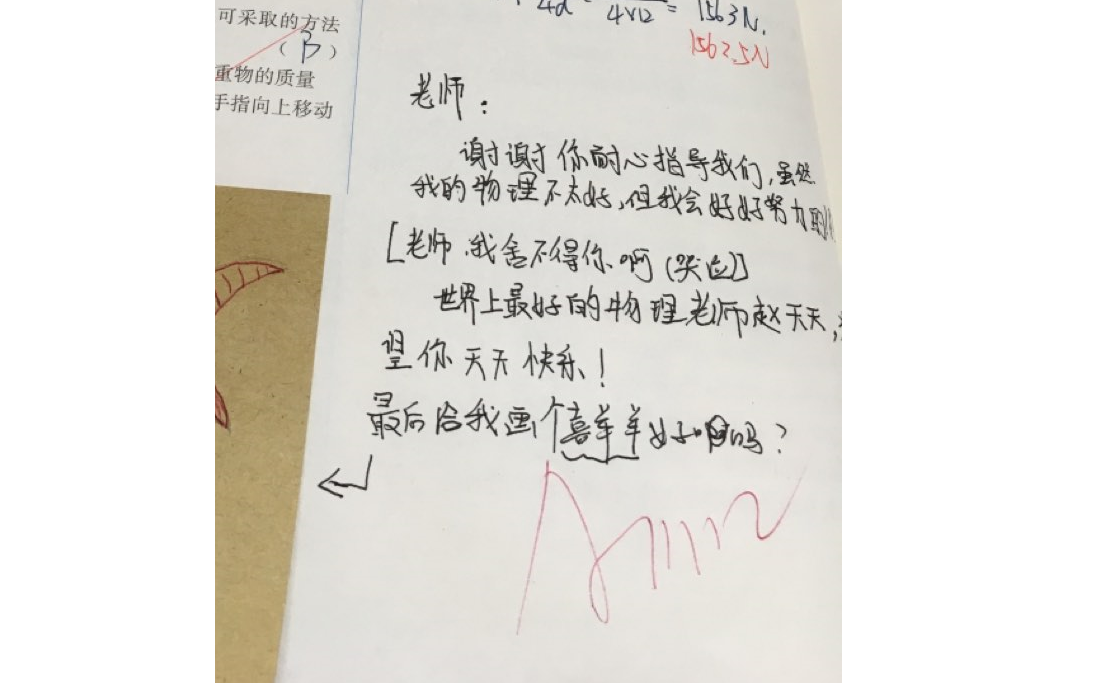 可采取的方法
( B )
重物的质量
手指向上移动
4d 4×12 = 1563N.
1562.5N
老师:
谢谢你耐心指导我们,虽然
我的物理不太好,但我会好好努力的
[老师.我舍不得你.啊(哭泣)]
世界上最好的物理老师赵天天,
望你天天快乐!
最后给我画个喜羊羊好吗?